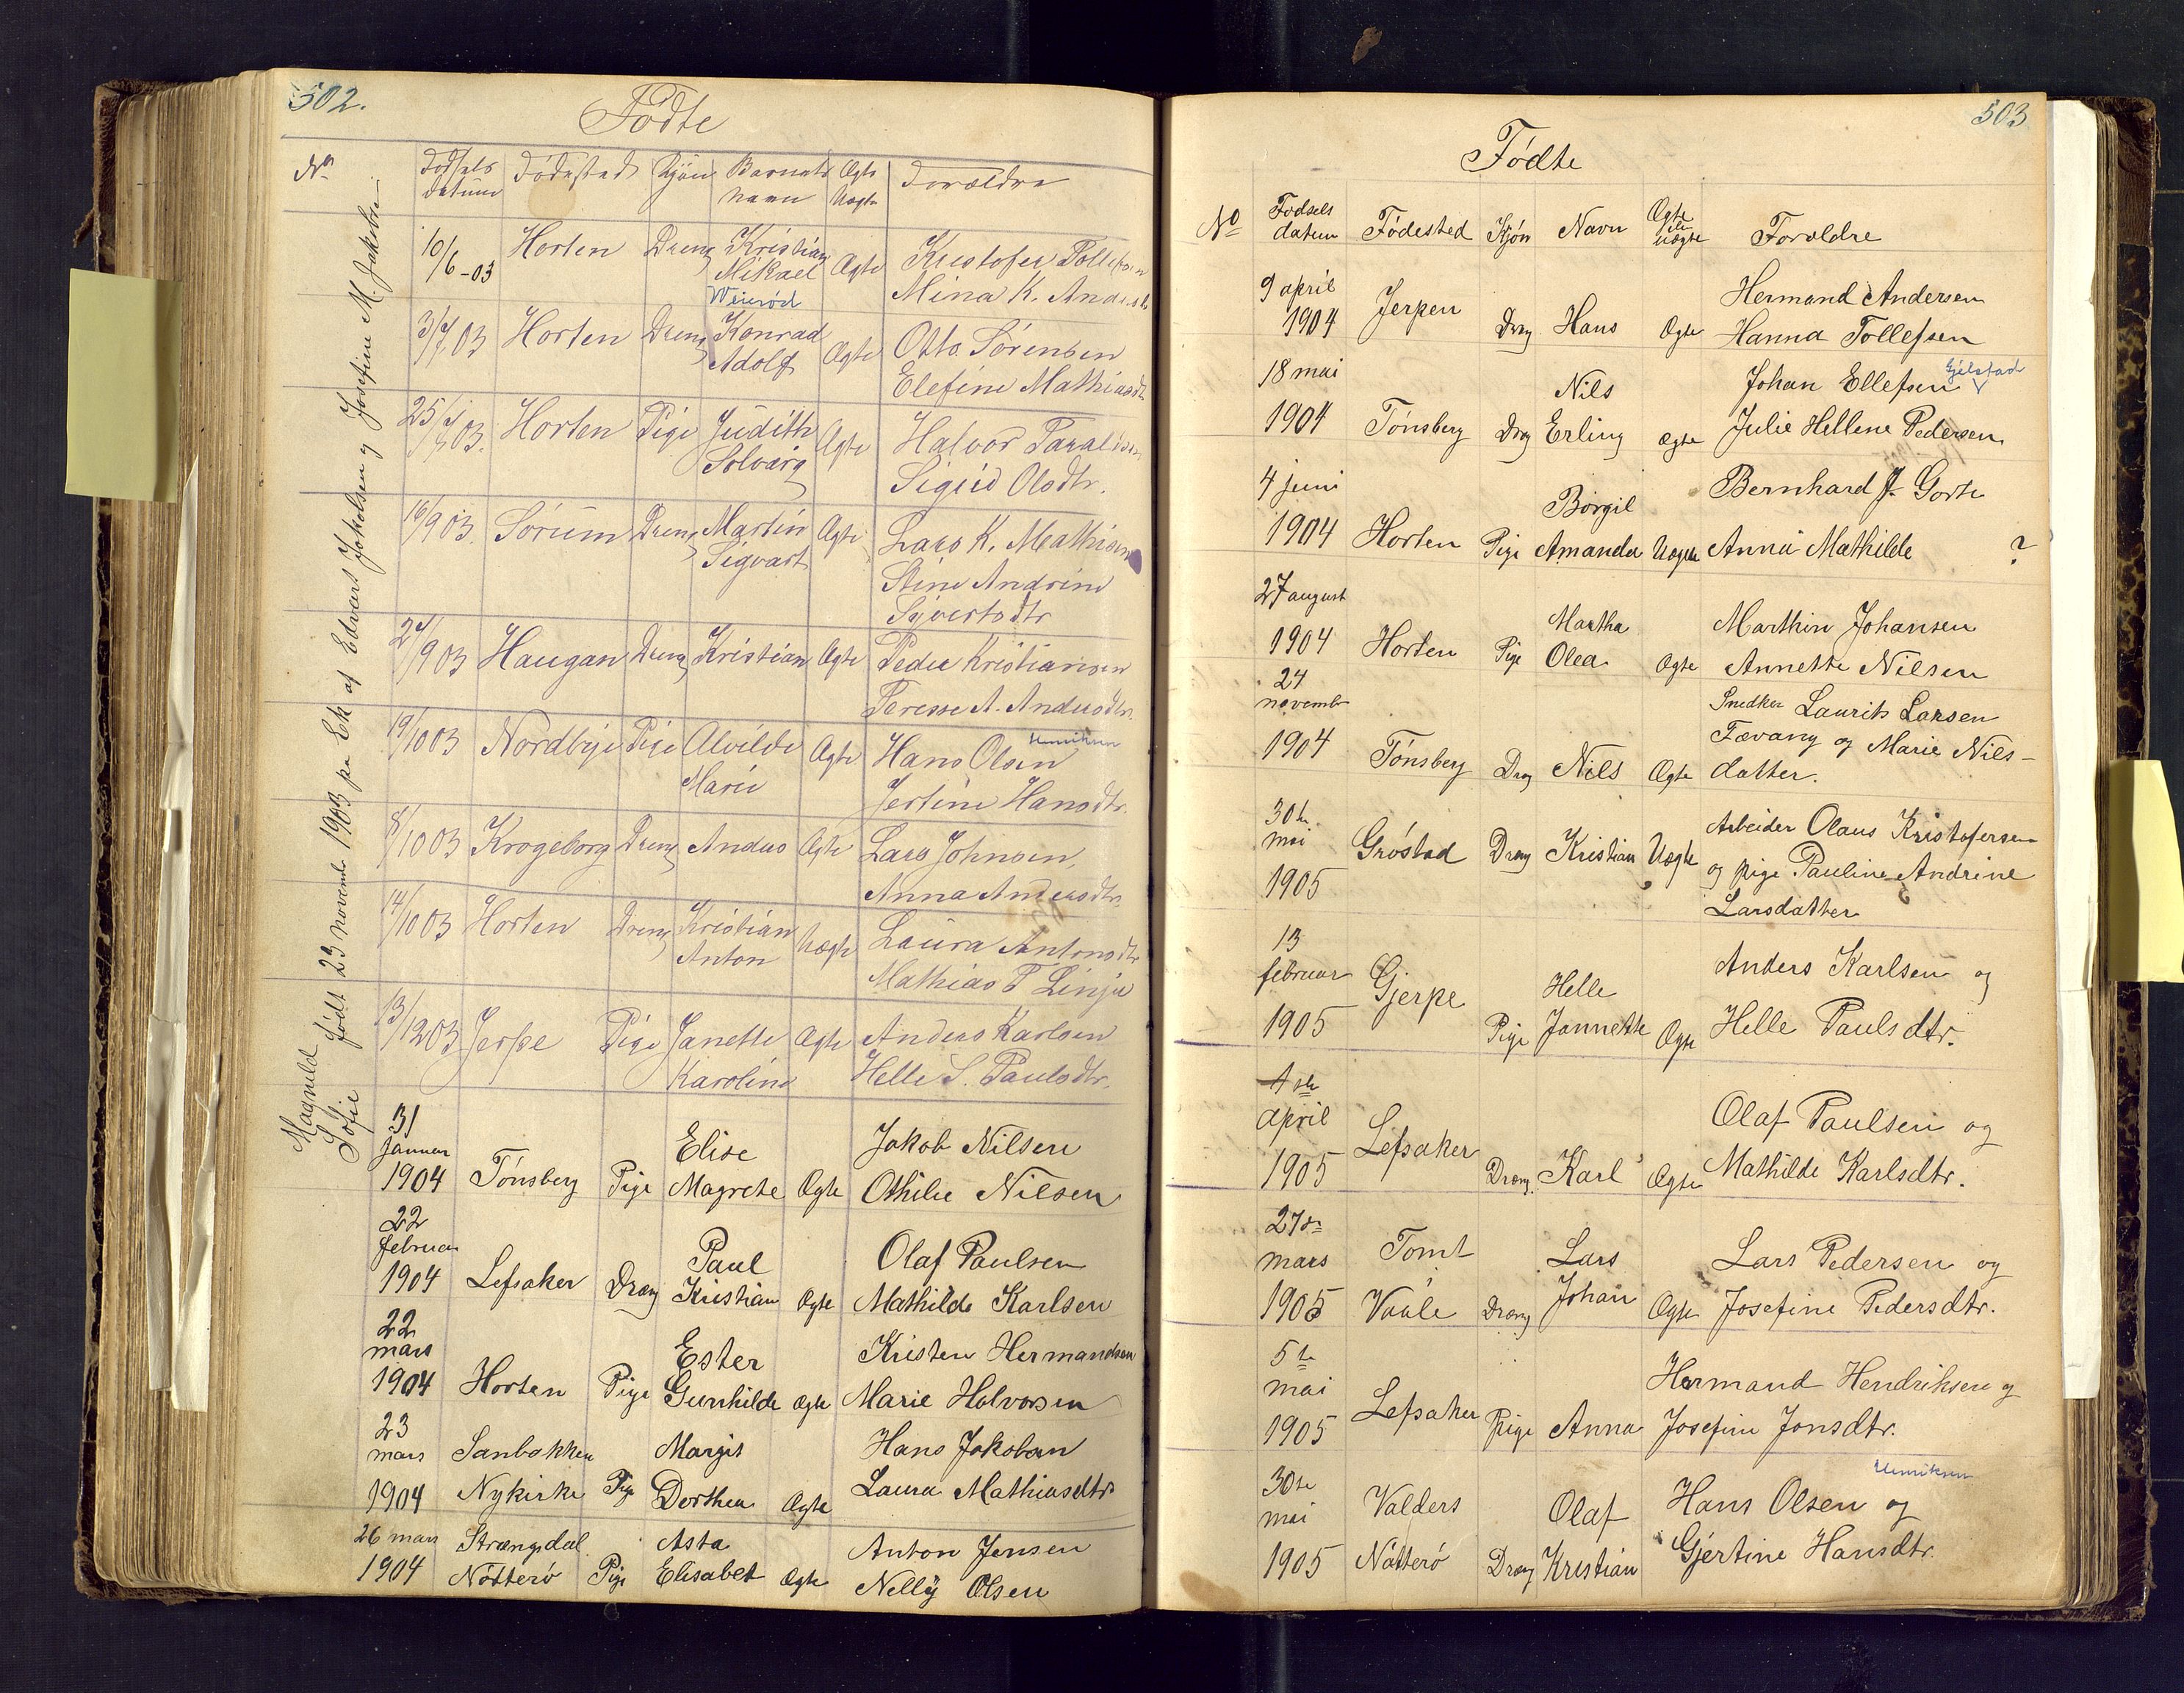 502.
Födte
No
Födsels
datum
Födested
Kjön
Barnets
navn
Ægte
Uægte
Forældre
10/6-03 Horten Dreng Kristian
Mikael Ægte Kristofer Tollefsen
Mina K. Andersdtr
Weierød
3/7 03 Horten Dreng Konrad
Adolf Ægte Otto Sörensen
Elefine Mathiasdtr
25/7 03. Horten Pige Judith
Solveig Ægte Halvor Taraldsen
Sigrid Olsdtr.
16/9 03. Sörum Dreng Martin
Sigvart Ægte Lars K. Mathisen
Stine Andrine
Syvertsdtr
24/9 03 Haugan Dreng Kristian Ægte Peder Kristiansen
Teresse A. Andersdtr.
19/10 03 Nordbye Pige Alvilde
Marie Ægte Hans Olsen Henriksen
Jertine Hansdtr.
8/10 03 Krogeborg Dreng Anders Ægte Lars Johnsen,
Anna Andersdtr.
14/10 03 Horten Dreng Kristian
Anton Uægte Laura Antonsdtr
Mathias T Linje
13/12 03 Jerpe Pige Janette
Karoline Ægte Anders Karlsen
Helle S. Paulsdtr.
31
januar
1904 Tönsberg Pige Elise
Magrete Ægte Jakob Nilsen
Othilie Nilsen
22
februar
1904 Lefsaker Dreng Paul
Kristian Ægte Olaf Paulsen
Mathilde Karlsen
22
mars
1904 Horten Pige Ester
Gunhilde Ægte Kristen Hermandsen
Marie Halvorsen
23
mars
1904 Sanbakken
Nykirke Pige Margit
Dorthea Ægte Hans Jakobsen
Laura Mathiasdtr
26 mars
1904 Strængsdal.
Nötterö Pige Asta
Elisabet Ægte Anton Jensen
Nelly Olsen
Magnild
Sofie
født 23 november 1903 på Ek af Edvart Jakobsen og Josefine M. Jakobsen
503
Födte
No
Födsels
datum
Födested
Kjön
Navn
Ægte
eller
uægte
Foreldre
9 april
1904 Jerpen Dreng Hans Ægte Hermand Andersen
Hanna Tollefsen
18 mai
1904 Tönsberg Dreng Nils
Erling Ægte Johan Ellefsen Gjelstad
Julie Hellene Pedersen
4 juni
1904 Horten Pige Borgil
Amanda Uægte Bernhard J. Gorte
Anna Mathilde ?
27 august
1904 Horten Pige Martha
Olea Ægte Marthin Johansen
Annette Nilsen
24
novembr
1904 Tönsberg Dreng Nils Ægte Snedker Laurits Larsen
Fævang og Marie Nils-
datter.
30te
mai
1905 Gröstad Dreng Kristian Uægte Arbeider Olaus Kristofersen
og pige Pauline Andrine
Larsdatter
13
februar
1905 Gjerpe Pige Helle
Jannette Ægte Anders Karlsen og
Helle Paulsdtr.
1ste
april
1905 Lefsaker Dreng. Karl Ægte Olaf Paulsen og
Mathilde Karlsdtr.
27de
mars
1905 Tomt
Vaale Dreng Lars
Johan Ægte Lars Pedersen og
Josefine Pedersdtr.
5te
mai
1905 Lefsaker Pige Anna Hermand Hendriksen og
Josefine Jonsdtr.
30te
mai
1905 Valders
Nötterö Dreng Olaf
Kristian Hans Olsen og Henriksen
Gjertine Hansdtr.